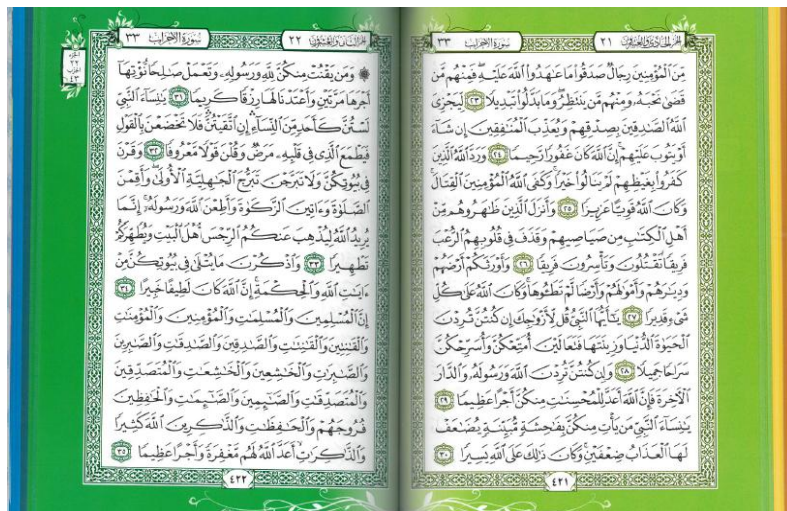 الجزء الحادي والعشرون ٢١
سورة الأحزاب ٣٣
مِّنَ ٱلْمُؤْمِنِينَ رِجَالٌ صَدَقُوا۟ مَا عَٰهَدُوا۟ ٱللَّهَ عَلَيْهِ ۖ فَمِنْهُم مَّن
قَضَىٰ نَحْبَهُۥ وَمِنْهُم مَّن يَنتَظِرُ ۖ وَمَا بَدَّلُوا۟ تَبْدِيلًا ٢٣ لِّيَجْزِىَ
ٱللَّهُ ٱلصَّٰدِقِينَ بِصِدْقِهِمْ وَيُعَذِّبَ ٱلْمُنَٰفِقِينَ إِن شَآءَ
أَوْ يَتُوبَ عَلَيْهِمْ ۚ إِنَّ ٱللَّهَ كَانَ غَفُورًا رَّحِيمًا ٢٤ وَرَدَّ ٱللَّهُ ٱلَّذِينَ
كَفَرُوا۟ بِغَيْظِهِمْ لَمْ يَنَالُوا۟ خَيْرًا ۚ وَكَفَى ٱللَّهُ ٱلْمُؤْمِنِينَ ٱلْقِتَالَ ۚ
وَكَانَ ٱللَّهُ قَوِيًّا عَزِيزًا ٢٥ وَأَنزَلَ ٱلَّذِينَ ظَٰهَرُوهُم مِّنْ
أَهْلِ ٱلْكِتَٰبِ مِن صَيَاصِيهِمْ وَقَذَفَ فِى قُلُوبِهِمُ ٱلرُّعْبَ
فَرِيقًا تَقْتُلُونَ وَتَأْسِرُونَ فَرِيقًا ٢٦ وَأَوْرَثَكُمْ أَرْضَهُمْ
وَدِيَٰرَهُمْ وَأَمْوَٰلَهُمْ وَأَرْضًا لَّمْ تَطَـُٔوهَا ۚ وَكَانَ ٱللَّهُ عَلَىٰ كُلِّ
شَىْءٍ قَدِيرًا ٢٧ يَٰٓأَيُّهَا ٱلنَّبِىُّ قُل لِّأَزْوَٰجِكَ إِن كُنتُنَّ تُرِدْنَ
ٱلْحَيَوٰةَ ٱلدُّنْيَا وَزِينَتَهَا فَتَعَالَيْنَ أُمَتِّعْكُنَّ وَأُسَرِّحْكُنَّ
سَرَاحًا جَمِيلًا ٢٨ وَإِن كُنتُنَّ تُرِدْنَ ٱللَّهَ وَرَسُولَهُۥ وَٱلدَّارَ
ٱلْءَاخِرَةَ فَإِنَّ ٱللَّهَ أَعَدَّ لِلْمُحْسِنَٰتِ مِنكُنَّ أَجْرًا عَظِيمًا ٢٩
يَٰنِسَآءَ ٱلنَّبِىِّ مَن يَأْتِ مِنكُنَّ بِفَٰحِشَةٍ مُّبَيِّنَةٍ يُضَٰعَفْ
لَهَا ٱلْعَذَابُ ضِعْفَيْنِ ۚ وَكَانَ ذَٰلِكَ عَلَى ٱللَّهِ يَسِيرًا ٣٠
٤٢١
الجزء الثاني والعشرون ٢٢
سورة الأحزاب ٣٣
الجزء
٢٢
الحزب
٤٣
۞ وَمَن يَقْنُتْ مِنكُنَّ لِلَّهِ وَرَسُولِهِۦ وَتَعْمَلْ صَٰلِحًا نُّؤْتِهَآ
أَجْرَهَا مَرَّتَيْنِ وَأَعْتَدْنَا لَهَا رِزْقًا كَرِيمًا ٣١ يَٰنِسَآءَ ٱلنَّبِىِّ
لَسْتُنَّ كَأَحَدٍ مِّنَ ٱلنِّسَآءِ ۚ إِنِ ٱتَّقَيْتُنَّ فَلَا تَخْضَعْنَ بِٱلْقَوْلِ
فَيَطْمَعَ ٱلَّذِى فِى قَلْبِهِۦ مَرَضٌ وَقُلْنَ قَوْلًا مَّعْرُوفًا ٣٢ وَقَرْنَ
فِى بُيُوتِكُنَّ وَلَا تَبَرَّجْنَ تَبَرُّجَ ٱلْجَٰهِلِيَّةِ ٱلْأُولَىٰ ۖ وَأَقِمْنَ
ٱلصَّلَوٰةَ وَءَاتِينَ ٱلزَّكَوٰةَ وَأَطِعْنَ ٱللَّهَ وَرَسُولَهُۥٓ ۚ إِنَّمَا
يُرِيدُ ٱللَّهُ لِيُذْهِبَ عَنكُمُ ٱلرِّجْسَ أَهْلَ ٱلْبَيْتِ وَيُطَهِّرَكُمْ
تَطْهِيرًا ٣٣ وَٱذْكُرْنَ مَا يُتْلَىٰ فِى بُيُوتِكُنَّ مِنْ
ءَايَٰتِ ٱللَّهِ وَٱلْحِكْمَةِ ۚ إِنَّ ٱللَّهَ كَانَ لَطِيفًا خَبِيرًا ٣٤
إِنَّ ٱلْمُسْلِمِينَ وَٱلْمُسْلِمَٰتِ وَٱلْمُؤْمِنِينَ وَٱلْمُؤْمِنَٰتِ
وَٱلْقَٰنِتِينَ وَٱلْقَٰنِتَٰتِ وَٱلصَّٰدِقِينَ وَٱلصَّٰدِقَٰتِ وَٱلصَّٰبِرِينَ
وَٱلصَّٰبِرَٰتِ وَٱلْخَٰشِعِينَ وَٱلْخَٰشِعَٰتِ وَٱلْمُتَصَدِّقِينَ
وَٱلْمُتَصَدِّقَٰتِ وَٱلصَّٰٓئِمِينَ وَٱلصَّٰٓئِمَٰتِ وَٱلْحَٰفِظِينَ
فُرُوجَهُمْ وَٱلْحَٰفِظَٰتِ وَٱلذَّٰكِرِينَ ٱللَّهَ كَثِيرًا
وَٱلذَّٰكِرَٰتِ أَعَدَّ ٱللَّهُ لَهُم مَّغْفِرَةً وَأَجْرًا عَظِيمًا ٣٥
٤٢٢